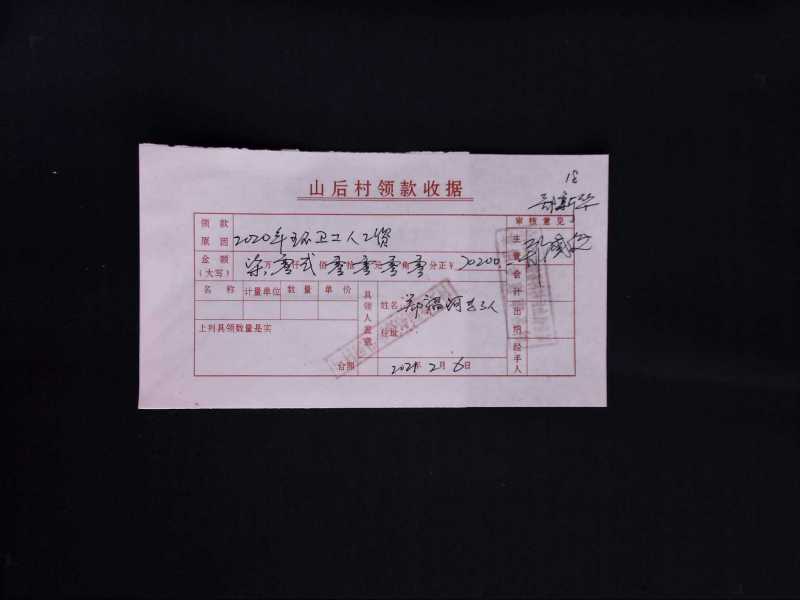 山后村领款收据
领款原因 2020年环卫工人工资
审核意见
金额(大写) 柒万零仟贰佰零拾零元零角零分正¥ 70200.
主管
会计
名称 计量单位 数量 单价
具领人盖章
姓名 郑福河等3人
住址
出纳
上列具领数量是实
经手人
台照
2021年2月6日